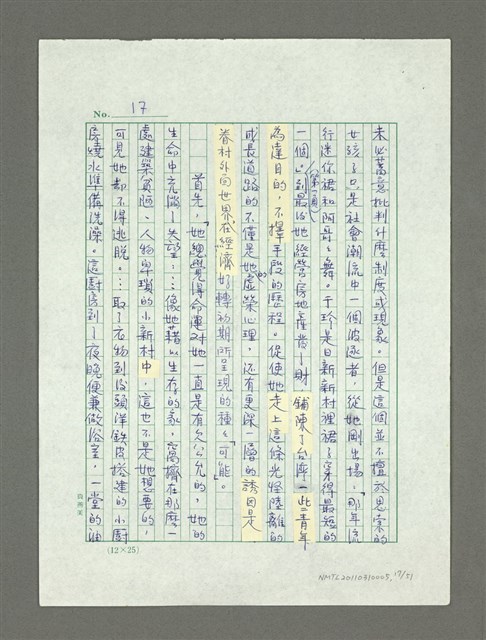 No. 17
未必蓄意批判什麼制度或現象。但是這個並不擅於思索的
女孩子只是社會潮流中一個波逐者，從她剛出場，「那年流
行迷你裙和阿哥哥舞。于玲是日新新村裡裙子穿得最短的
一個」（第一頁）到最後她經營房地產發了財，鋪陳了台灣一些青年
為達目的，不擇手段的歷程。促使她走上這條光怪陸離的
成長道路的不僅是她的虛榮心理，還有更深一層的誘因是
眷村外面世界在經濟好轉初期所呈現的種種「可能」。
首先，「她總覺得命運對她一直是有欠公允的，她的
生命中充滿了失望……像她藉以生存的家，窩擠在那麼一
處建築簡陋、人物卑瑣的小新村中，這也不是她想要的，
可見她卻不得逃脫。…取了衣物到後頭洋鐵皮搭建的小廚
房燒水準備洗澡。這廚房到了夜晚便兼做浴室，一堂的油
(12×25)
NMTL20110310005, 17/51